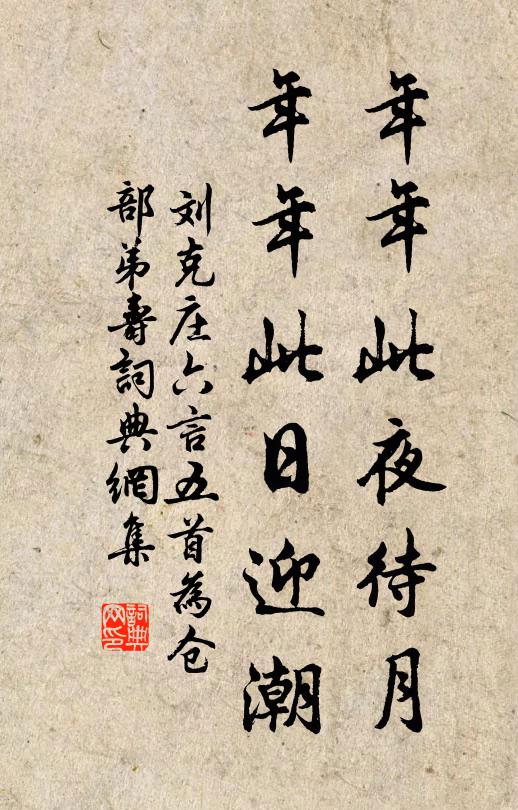 年年此夜待月
年年此日迎潮
刘克庄六言五首為仓
部弟壽詞典網集
詞典网印